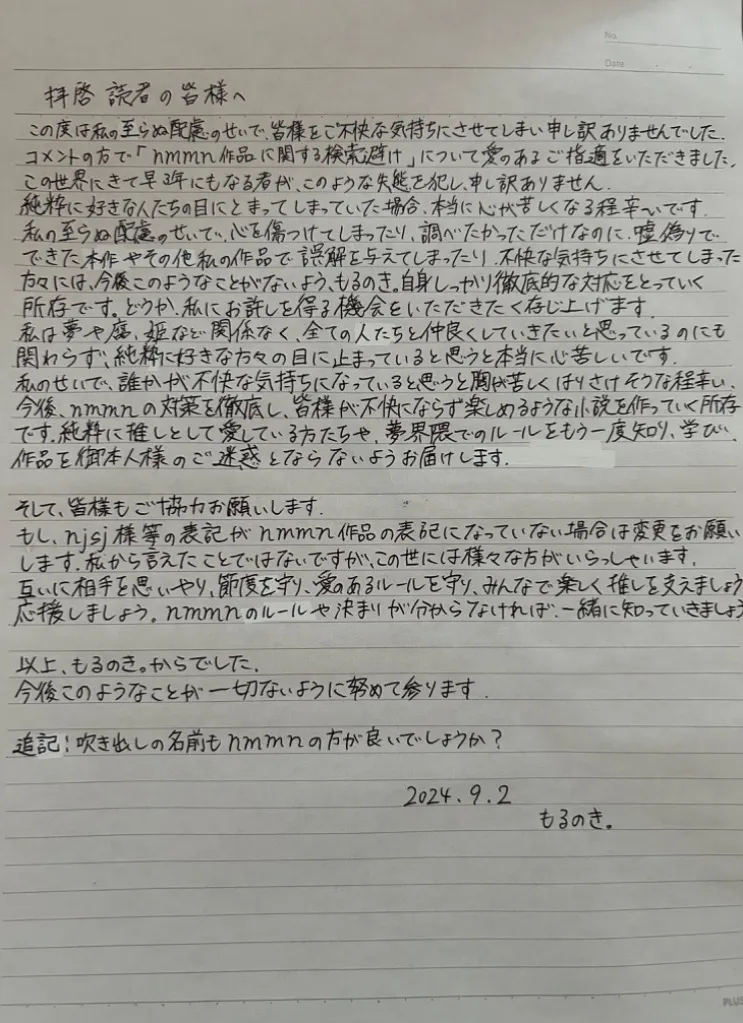 No.
Date
拝啓 読者の皆様へ
この度は私の至らぬ配慮のせいで、皆様をご不快な気持ちにさせてしまい申し訳ありませんでした.
コメントの方で「nmmn作品に関する検索避け」について愛のあるご指適をいただきました.
この世界にきて早3年にもなる者が、このような失態を犯し、申し訳ありません.
純粋に好きな人たちの目にとまってしまっていた場合、本当に心が苦しくなる程辛いです.
私の至らぬ配慮のせいで、心を傷つけてしまったり、調べたかっただけなのに、嘘偽りで
できた本作やその他私の作品で誤解を与えてしまったり、不快な気持ちにさせてしまった
方々には、今後このようなことがないよう、もるのき。自身しっかり徹底的な対応をとっていく
所存です。どうか、私にお許しを得る機会をいただきたく存じ上げます.
私は夢や腐、姫など関係なく、全ての人たちと仲良くしていきたいと思っているのにも
関わらず、純粋に好きな方々の目に止まっていると思うと本当に心苦しいです.
私のせいで、誰かが不快な気持ちになっていると思うと胸が苦しくはりさけそうな程辛い、
今後、nmmnの対策を徹底し、皆様が不快にならず楽しめるような小説を作っていく所存
です.純粋に推しとして愛している方たちや、夢界隈でのルールをもう一度知り、学び、
作品を御本人様のご迷惑とならないようお届けします.
そして、皆様もご協力お願いします.
もし、njsj様等の表記がnmmn作品の表記になっていない場合は変更をお願い
します.私から言えたことではないですが、この世には様々な方がいらっしゃいます.
互いに相手を思いやり、節度を守り、愛のあるルールを守り、みんなで楽しく推しを支えましょう
応援しましょう。nmmnのルールや決まりが分からなければ、一緒に知っていきましょう
以上、もるのき。からでした.
今後このようなことが一切ないように努めて参ります.
追記:吹き出しの名前もnmmnの方が良いでしょうか?
2024.9.2
もるのき。
PLUS